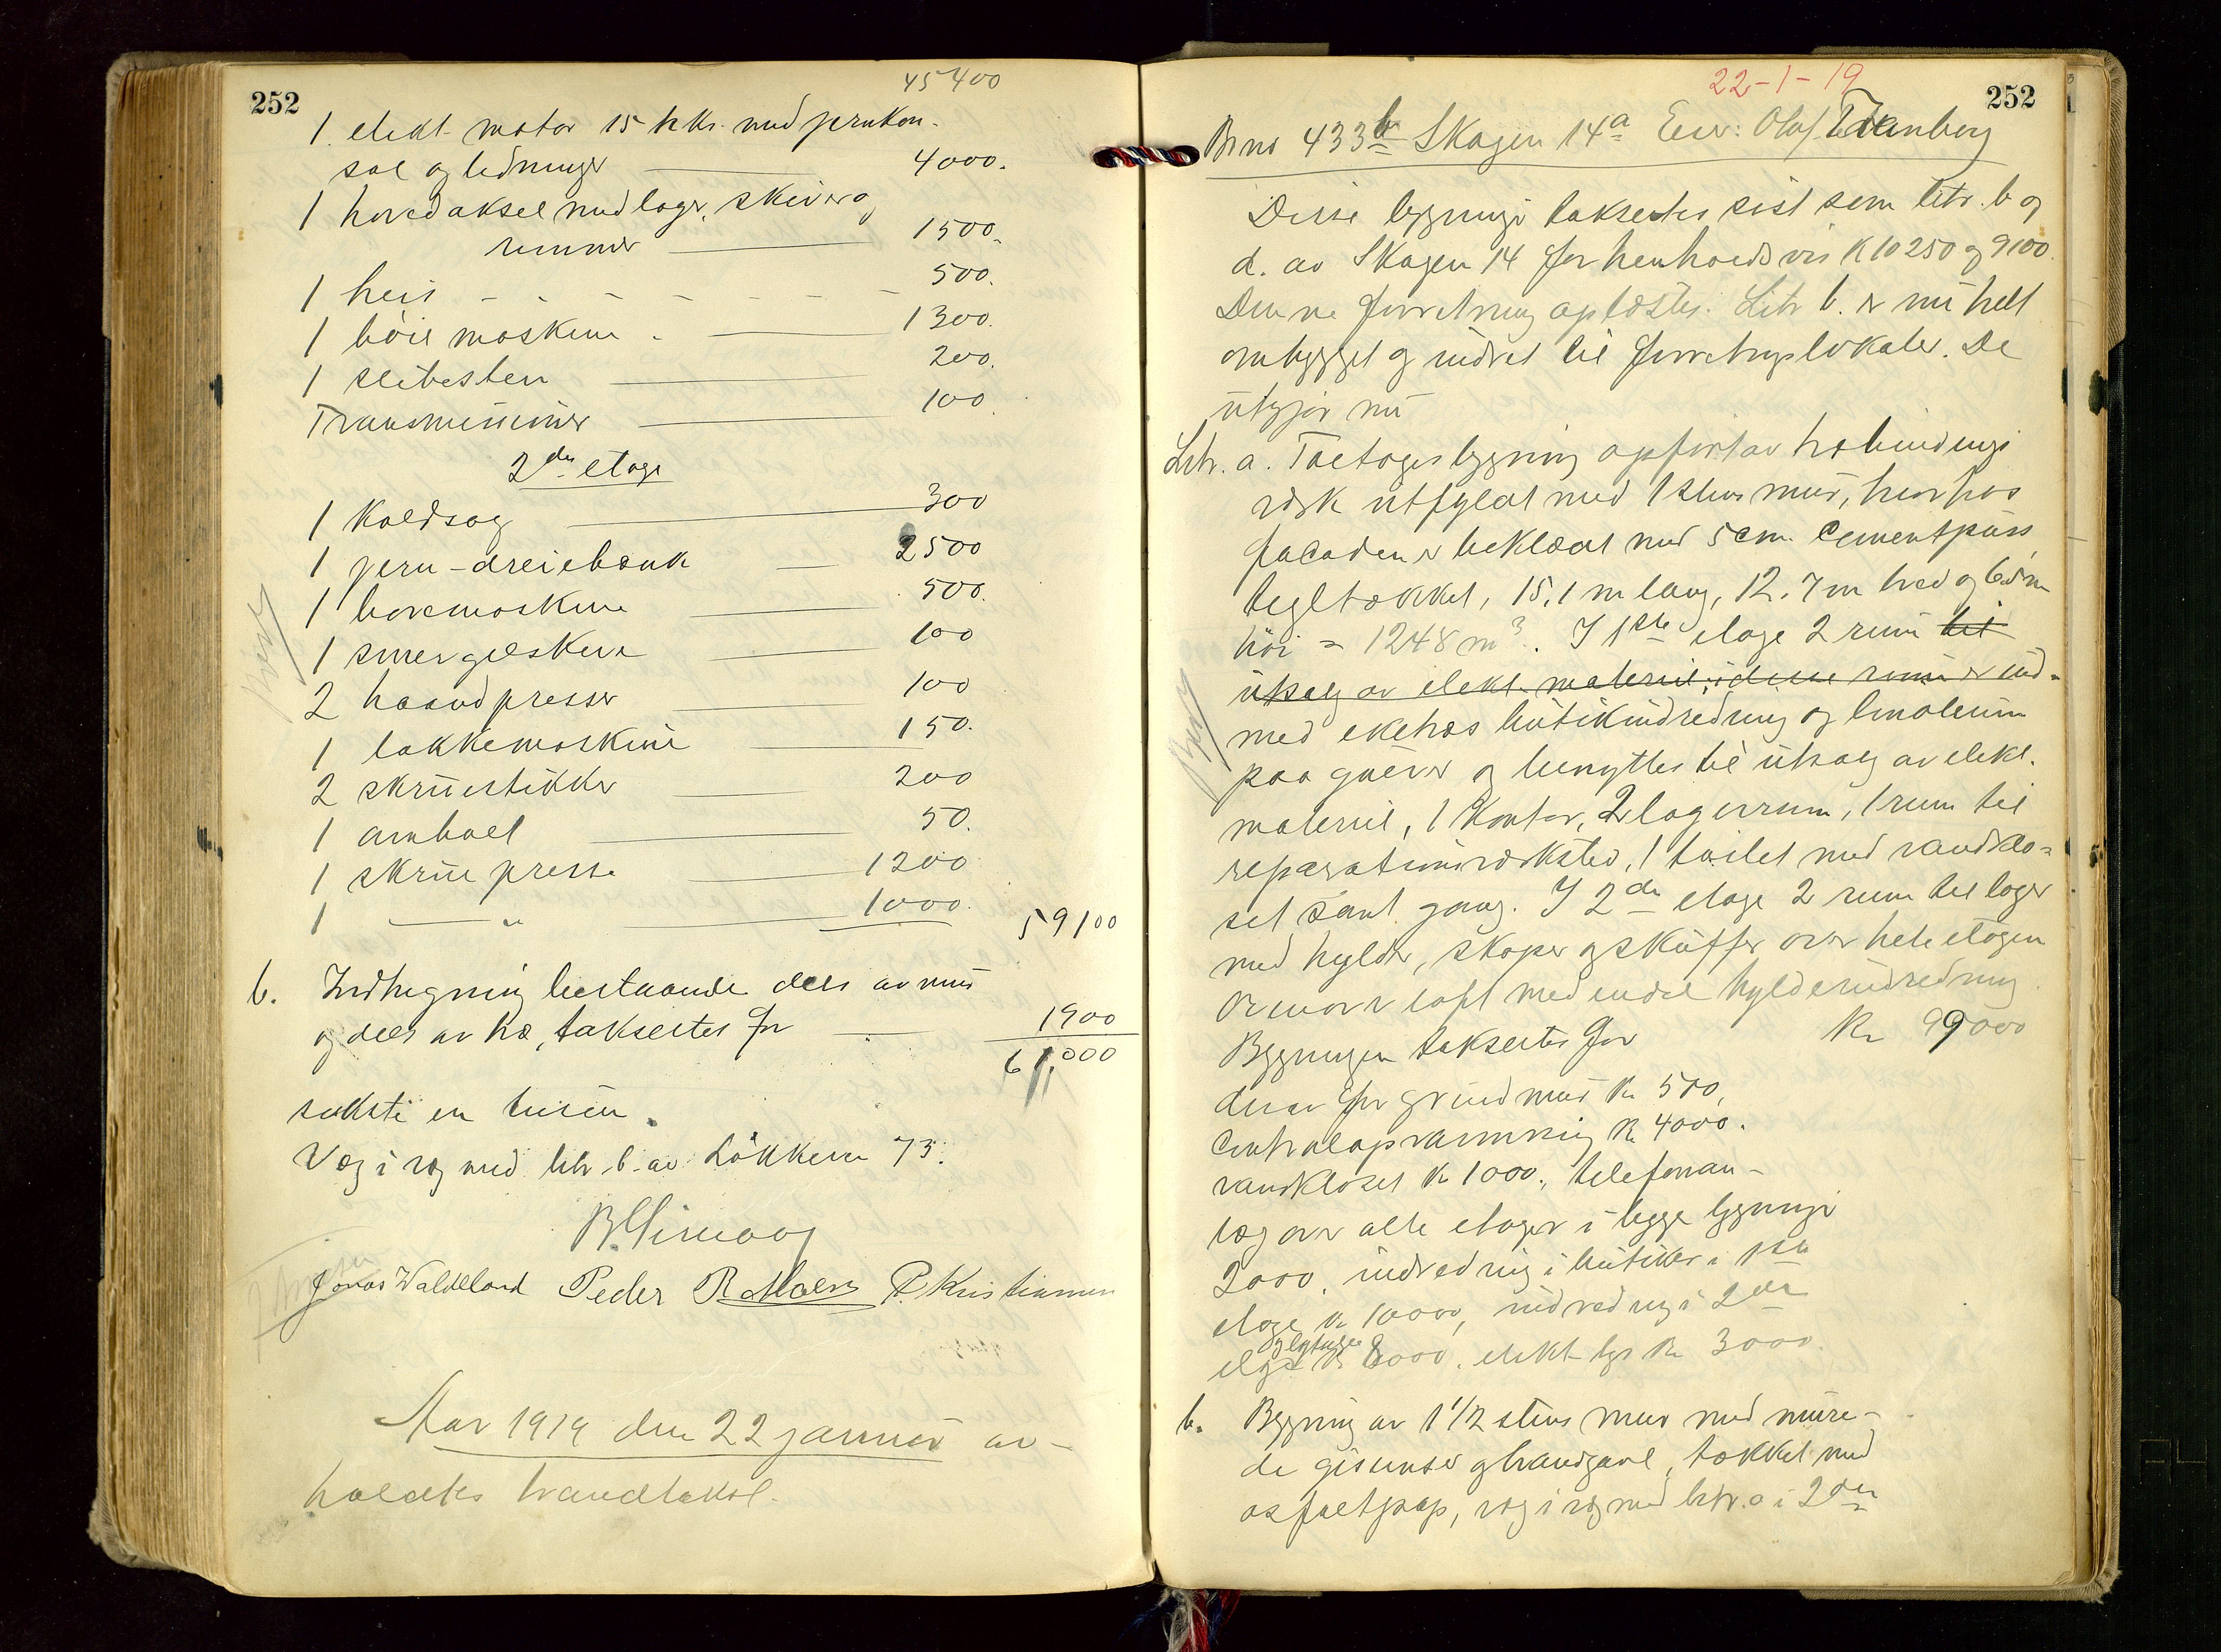 252
45400
1 elekt. motor 15 hkr. med prukon-
sol og ledninger 4000.
1 hovedaksel med lager, skiver og
remmer 1500.
1 heis 500.
1 böie maskine 1300.
1 slibesten 200.
Transmissioner 100
2den etage
1 Koldsag 300
1 jern-dreiebænk 2500
1 boremaskine 500.
1 smergelskive 100
2 haandpresser 100
1 lokkemaskine 150.
2 skruestikker 200
1 ambolt 50.
1 skrue presse 1200
1 — " — 1000. 59100
b. Indhegning bestaaende dels av mur
og dels av træ, taksertes for 1900
61,000
seksti en tusen.
Væg i væg med litr. b. av Lökkevn 73.
Jonas Waldeland Peder R. Moen P. Kristiansen
Aar 1919 den 22 januar av-
holdtes brandtakst.
22-1-19
252
Br no 433b Skagen 14a Eier: Olaf Tranberg
Disse bygninger taksertes sist som litr. b og
d. av Skagen 14 for henholdsvis K 10250 og 9100.
Denne forretning oplæstes. Litr b. er nu helt
ombygget og indret til forretningslokaler. De
utgjør nu
Litr. a. Toetages bygning opført av træbindings
verk utfyldt med 1 stens mur, hvorhos
facaden er beklædt med 5 cm. cementpuss,
tegltækket, 15,1 m lang, 12.7 m bred og 6.5 m
höi = 1248 m3. I 1ste etage 2 rum til
utsalg av elekt. materiel, i disse rum er ind-
med eketræs butikindredning og linoleum
paa gulver og benyttes til utsalg av elekt.
materiel, 1 kontor, 2 lagerrum, 1 rum til
reparationsverksted, 1 toilet med vandklo-
set samt gang. I 2den etage 2 rum til lager
med hylder, skaper og skuffer over hele etagen
Ovenover loft med endel hylderindredning.
Bygningen taksertes for Kr 99000
derav for grundmur Kr 500,
Centralopvarmning Kr 4000.
vandkloset Kr 1000., telefonan-
læg over alle etager i begge bygninger
2000, indredning i butiker i 1ste
etage Kr 10000, indredning i 2den
etage Kr 8000. elekt lys Kr 3000.
b. Bygning av 1 1/2 stens mur med mure-
de gesimser og brandgavl, tækket med
asfaltpap, væg i væg med litr. a i 2den